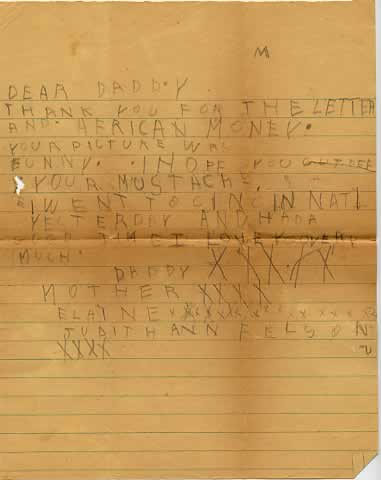 M
DEAR DADDY
THANK YOU FOR THE LETTER
AND AFRICAN MONEY.
YOUR PICTURE WAS
FUNNY. I HOPE YOU
YOUR MUSTACHE.
I WENT TO CINCINNATI
YESTERDAY AND HAD A
GOOD TIME I LOVE YOU VERY
MUCH.
DADDY XXXXX
MOTHER XXXX
ELAINE
JUDITH ANN FELSON
XXXX